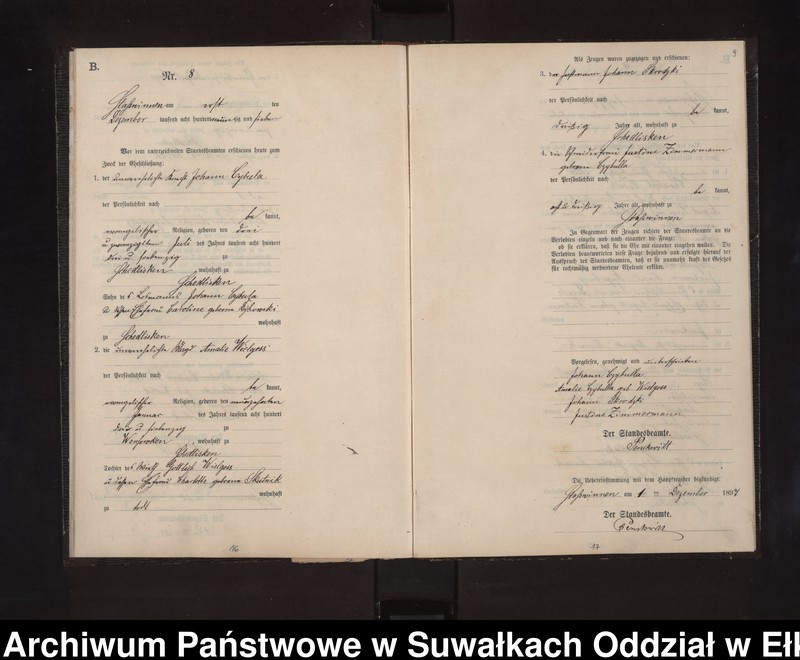 B.
Nr. 8
am erst ten
Dezember tausend acht hundert neunzig und sieben
Vor dem unterzeichneten Standesbeamten erschienen heute zum
Zweck der Eheschließung:
1. der unverehelichte Knecht Johann Cybula
der Persönlichkeit nach
be kannt,
evangelischer Religion, geboren den drei
u. zwanzigsten Juli des Jahres tausend acht hundert
drei u. siebenzig zu
Schedlisken wohnhaft zu
Schedlisken
Sohn des Losmanns Johann Cybula
u. dessen Ehefrau Caroline geborne
wohnhaft
zu Schedlisken
2. die unverehelichte Magd Amalie Wielgoss
der Persönlichkeit nach
be kannt,
evangelischer Religion, geboren den neunzehnten
Januar des Jahres tausend acht hundert
u. siebenzig zu
wohnhaft zu
Schedlisken
Tochter des Gottlieb Wielgoss
u. dessen Ehefrau Charlotte geborene Skutnick
wohnhaft
zu todt
16
9
Als Zeugen waren zugezogen und erschienen:
3. der Johann Skrodzki
der Persönlichkeit nach
be kannt,
dreißig Jahre alt, wohnhaft zu
Schedlisken
4. die Schneiderfrau Justine Zimmermann
geborene Czybulla
der Persönlichkeit nach
be kannt,
acht u. dreißig Jahre alt, wohnhaft zu
In Gegenwart der Zeugen richtete der Standesbeamte an die
Verlobten einzeln und nach einander die Frage:
ob sie erklären, daß sie die Ehe mit einander eingehen wollen. Die
Verlobten beantworteten diese Frage bejahend und erfolgte hierauf der
Ausspruch des Standesbeamten, daß er sie nunmehr kraft des Gesetzes
für rechtmäßig verbundene Eheleute erkläre.
Vorgelesen, genehmigt und unterschrieben
Johann Czybulla
Amalie Czybulla geb. Wielgoss
Johann Skrodzki
Justine Zimmermann
Der Standesbeamte.
Die Uebereinstimmung mit dem Hauptregister beglaubigt.
am 1. ten Dezember 1897
Der Standesbeamte.
17
Archiwum Państwowe w Suwałkach Oddział w Ełk